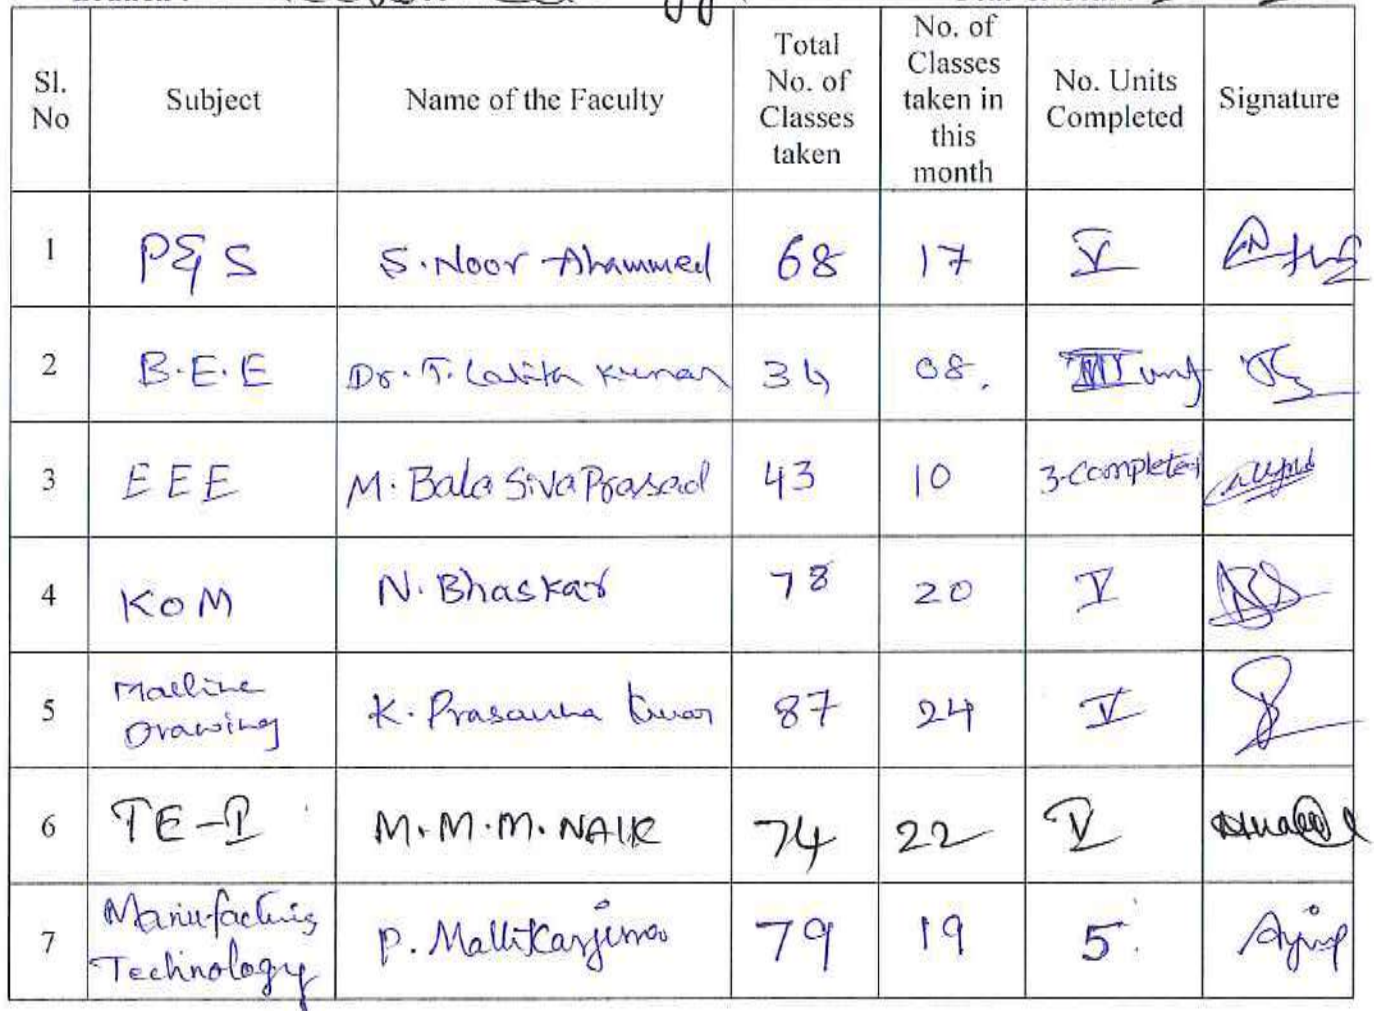 Sl. No Subject Name of the Faculty Total No. of Classes taken No. of Classes taken in this month No. Units Completed Signature
1 P & S S. Noor Ahammed 68 17 V
2 B.E.E Dr. T. Lalita Kumar 34 08. III unit
3 EEE M. Bala Siva Prasad 43 10 3-Completed
4 KOM N. Bhaskar 78 20 V
5 Machine Drawing K. Prasanna Kumar 87 24 V
6 TE-I M.M.M. NAIK 74 22 V
7 Manufacturing Technology P. Mallikarjuna 79 19 5